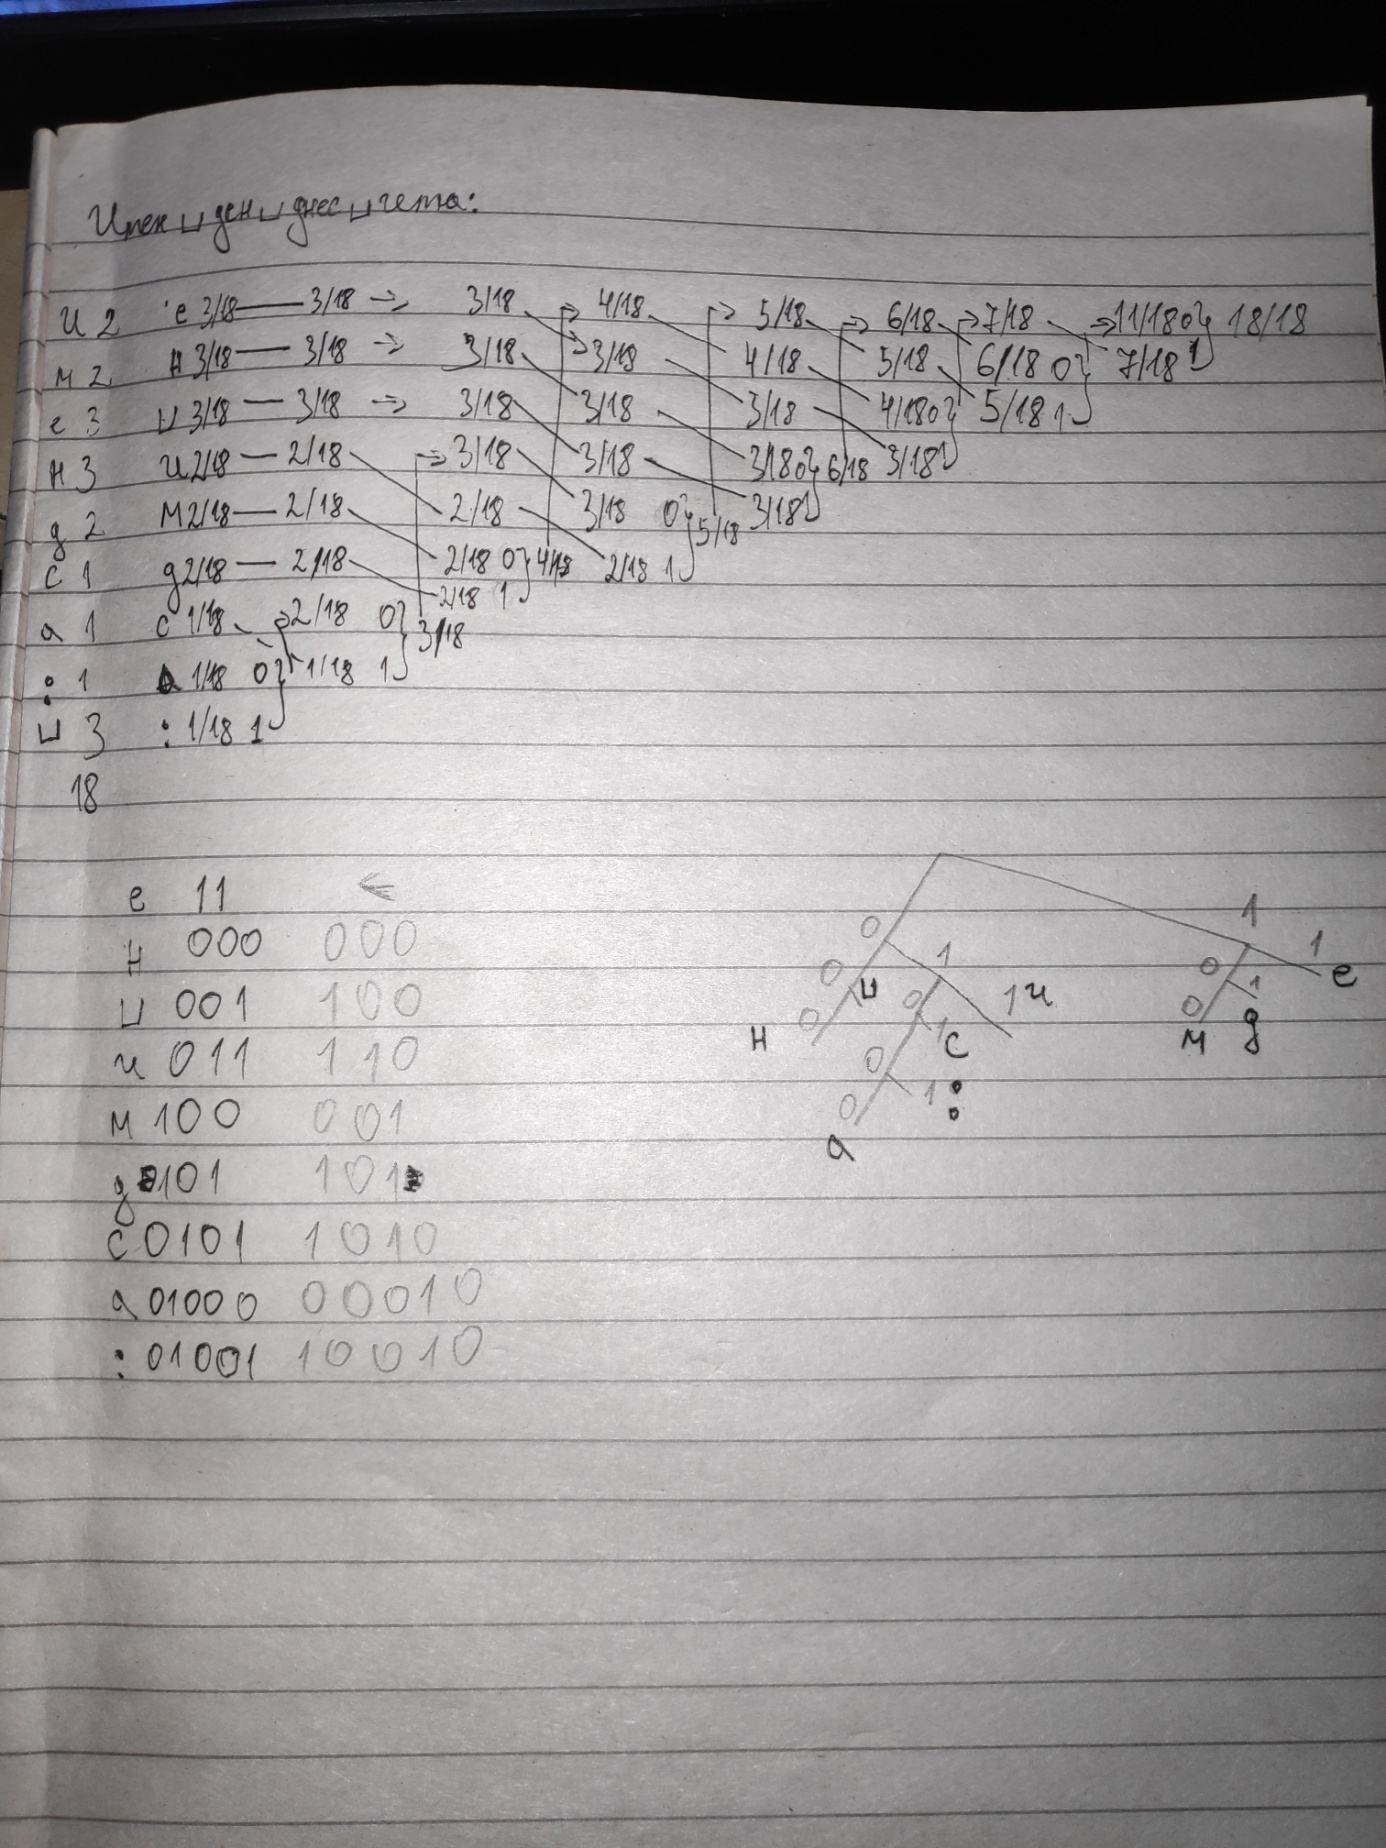 Имен␣ден␣днес␣чета:
и 2 е 3/18 — 3/18 → 3/18 → 4/18 → 5/18 → 6/18 → 7/18 → 11/18 0 18/18
м 2 н 3/18 — 3/18 → 3/18 → 3/18 4/18 5/18 6/18 0 7/18 1
е 3 ␣ 3/18 — 3/18 → 3/18 3/18 3/18 4/18 0 5/18 1
н 3 и 2/18 — 2/18 → 3/18 3/18 3/18 0 6/18 3/18 1
g 2 м 2/18 — 2/18 2/18 3/18 0 5/18 3/18 1
с 1 g 2/18 — 2/18 2/18 0 4/18 2/18 1
2/18 1
а 1 с 1/18 → 2/18 0 3/18
: 1 а 1/18 0 1/18 1
␣ 3 : 1/18 1
18
е 11 ←
н 000 000
␣ 001 100
и 011 110
м 100 001
g 101 101
с 0101 1010
а 01000 00010
: 01001 10010
0 1 1 1
0 ␣ 0 1 и 0 1 е
н 0 1 с 0 м 1 g
0 1 :
0
а